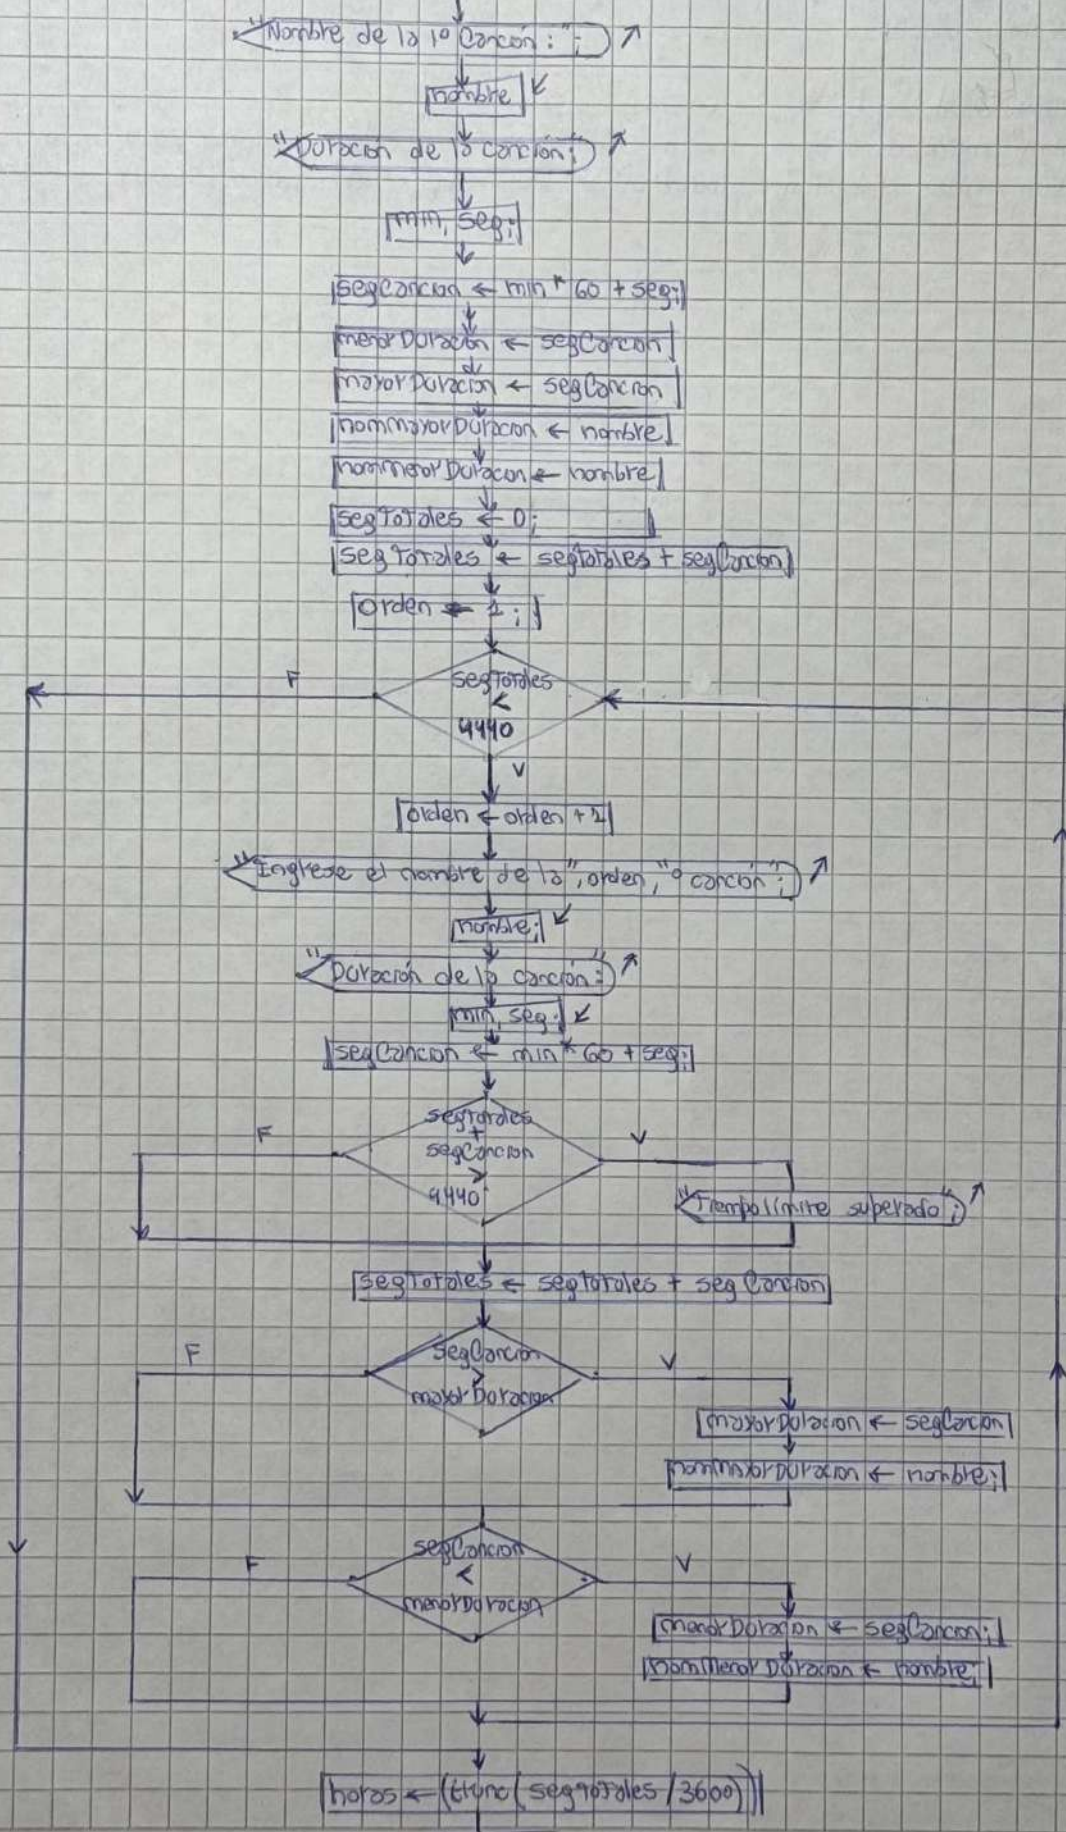 "Nombre de la 1º Canción: ";
nombre
"Duracion de la canción;"
min, seg;
segCancion ← min * 60 + seg;
menorDuración ← segCancion
mayorDuracion ← segCancion
nomMayorDuracion ← nombre
nomMenorDuracion ← nombre
segTotales ← 0;
segTotales ← segtotales + segCancion
orden ← 1;
segTotales
F
<
4440
V
orden ← orden + 1
"Ingrese el nombre de la", orden, "º canción";
nombre;
"Duración de la canción:"
min, seg;
segCancion ← min * 60 + seg;
segTotales
F
+
V
segCancion
>
4440
"Tiempo límite superado";
segTotales ← segtotales + segCancion
F
segCancion
V
>
mayorDuracion
mayorDuracion ← segCancion
nomMayorDuracion ← nombre;
segCancion
F
<
V
menorDuracion
menorDuracion ← segCancion;
nomMenorDuracion ← nombre;
horas ← (trunc(segtotales / 3600))